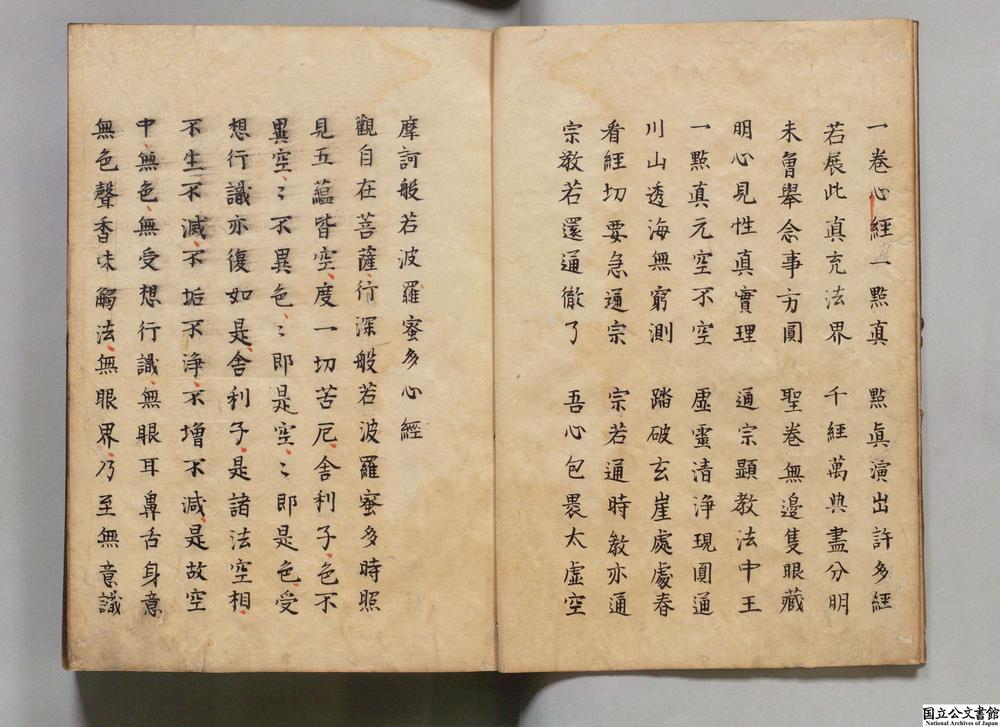 一卷心經一點真　點真演出許多經
若展此真充法界　千經萬典盡分明
未曾舉念事方圓　聖卷無邊隻眼藏
明心見性真實理　通宗顯教法中王
一點真元空不空　虛靈清淨現圓通
川山透海無窮測　踏破玄崖處處春
看經切要急通宗　宗若通時教亦通
宗教若還通徹了　吾心包褁太虛空
摩訶般若波羅蜜多心經
觀自在菩薩、行深般若波羅蜜多時照
見五蘊皆空、度一切苦厄、舍利子、色不
異空、〻不異色、〻即是空、〻即是色、受
想行識亦復如是、舍利子、是諸法空相、
不生不滅、不垢不淨、不增不減、是故空
中、無色、無受想行識、無眼耳鼻舌身意、
無色聲香味觸法、無眼界、乃至無意識
国立公文書館
National Archives of Japan